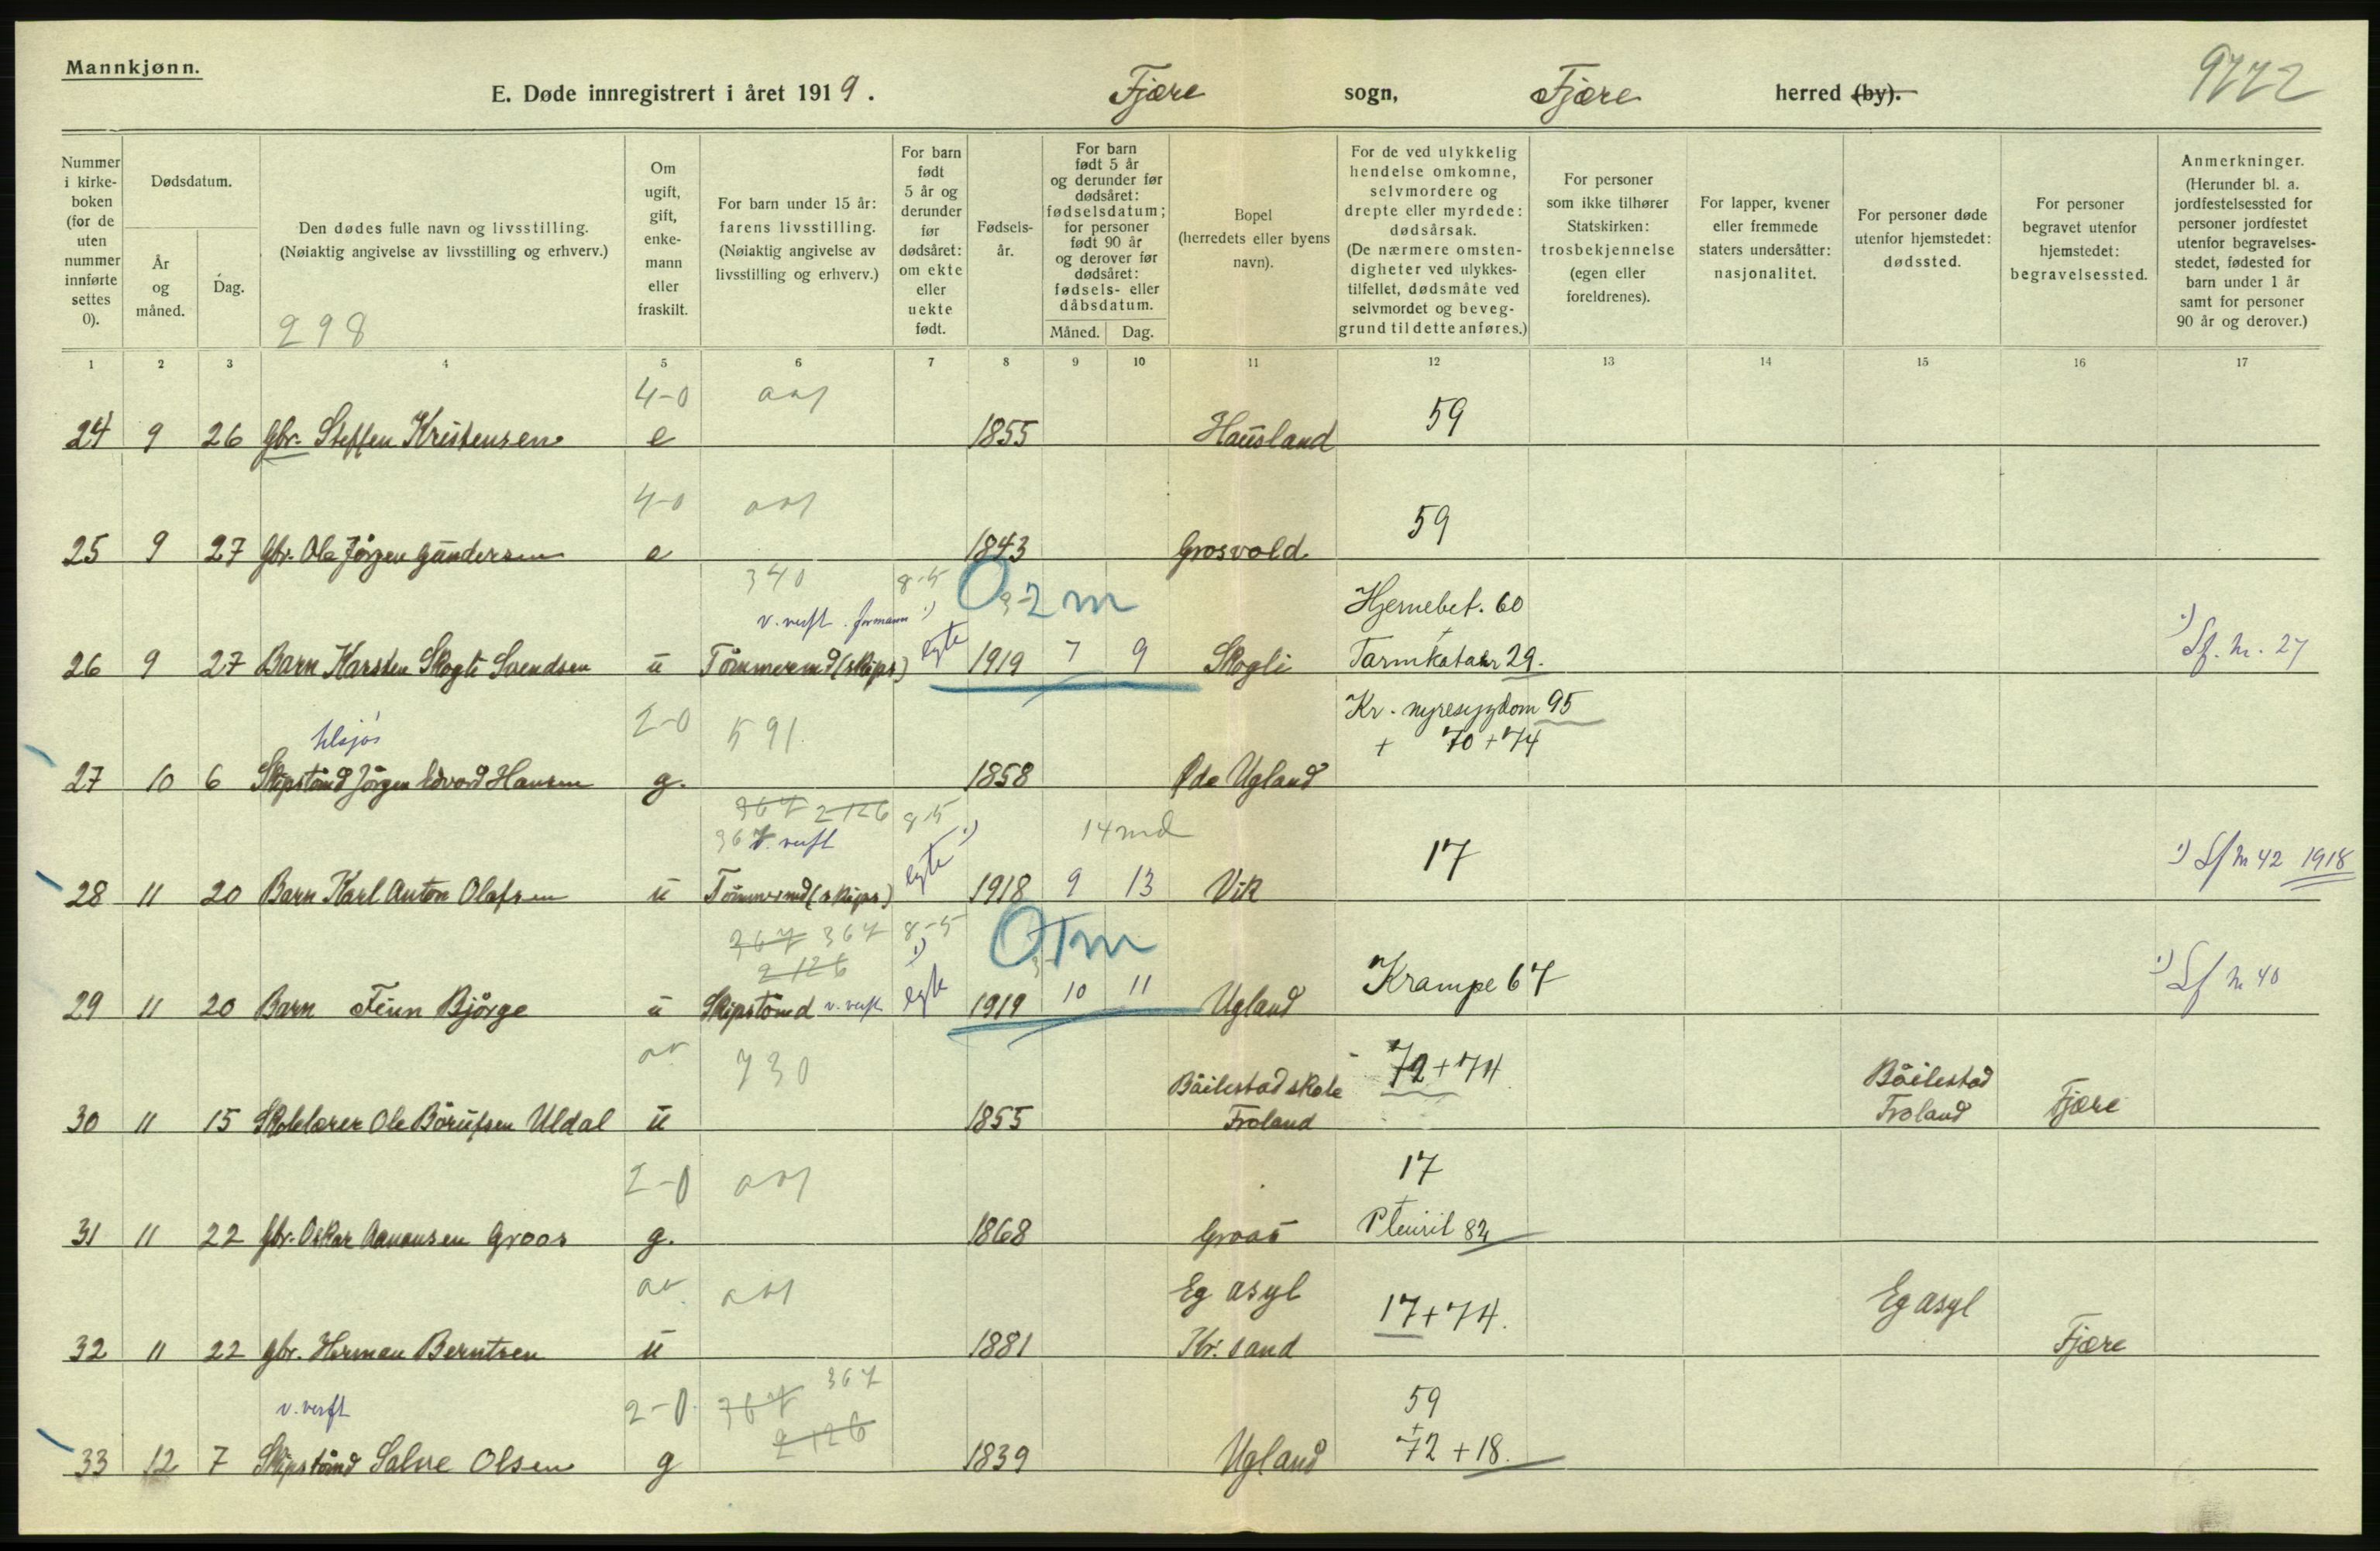 Mannkjønn.
E. Døde innregistrert i året 1919. Fjære sogn, Fjære herred (by). 9772
Nummer i kirke- boken (for de uten nummer innførte settes 0).
Dødsdatum.
År og måned.
Dag.
Den dødes fulle navn og livsstilling. (Nøiaktig angivelse av livsstilling og erhverv.)
298
Om ugift, gift, enke- mann eller fraskilt.
For barn under 15 år: farens livsstilling. (Nøiaktig angivelse av livsstilling og erhverv.)
For barn født 5 år og derunder før dødsåret: om ekte eller uekte født.
Fødsels- år.
For barn født 5 år og derunder før dødsåret: fødselsdatum; for personer født 90 år og derover før dødsåret: fødsels- eller dåbsdatum.
Måned. Dag.
Bopel (herredets eller byens navn).
For de ved ulykkelig hendelse omkomne, selvmordere og drepte eller myrdede: dødsårsak. (De nærmere omsten- digheter ved ulykkes- tilfellet, dødsmåte ved selvmordet og beveg- grund til dette anføres.)
For personer som ikke tilhører Statskirken: trosbekjennelse (egen eller foreldrenes).
For lapper, kvener eller fremmede staters undersåtter: nasjonalitet.
For personer døde utenfor hjemstedet: dødssted.
For personer begravet utenfor hjemstedet: begravelsessted.
Anmerkninger. (Herunder bl. a. jordfestelsessted for personer jordfestet utenfor begravelses- stedet, fødested for barn under 1 år samt for personer 90 år og derover.)
1 2 3 4 5 6 7 8 9 10 11 12 13 14 15 16 17
4-0 59
24 9 26 gbr. Steffen Kristensen e 1855 Hausland
4-0 59
25 9 27 gbr. Ole Jörgen Gundersen e 1843 Grosvold
340 8-5 0 2 m Hjernebet. 60
v. verft. formann 1) +
26 9 27 Barn Karsten Skogli Svendsen u Tömmermd (skips) egte 1919 7 9 Skogli Tarmkatarr 29. 1) Lf. nr. 27
2-0 591 Kr. nyresygdom 95
tilsjös + 70+74
27 10 6 Skipstömd Jörgen Edvard Hansen g. 1858 Øde Ugland
367 2126 8-5 14 md
367 v. verft 1) 17
28 11 20 Barn Karl Anton Olafsen u Tömmermd (skips) egte 1918 9 13 Vik 1) Lf nr 42 1918
267 367 8-5 0 1 m
2126 1) Krampe 67
29 11 20 Barn Finn Björge u Skipstömd v. verft egte 1919 10 11 Ugland 1) Lf nr 40
730 Böilestad skole 72+74 Böilestad
30 11 15 Skolelærer Ole Börufsen Uldal u 1855 Froland Froland Fjære
2-0 17
+
31 11 22 gbr. Oskar Aanonsen Groos g. 1868 Groos Pleurit 82
Eg asyl 17+74. Eg asyl
32 11 22 gbr. Herman Berntsen u 1881 Kr. sand Fjære
v. verft 2-0 367 367 59
2126 +
33 12 7 Skipstömd Salve Olsen g 1839 Ugland 72+18.